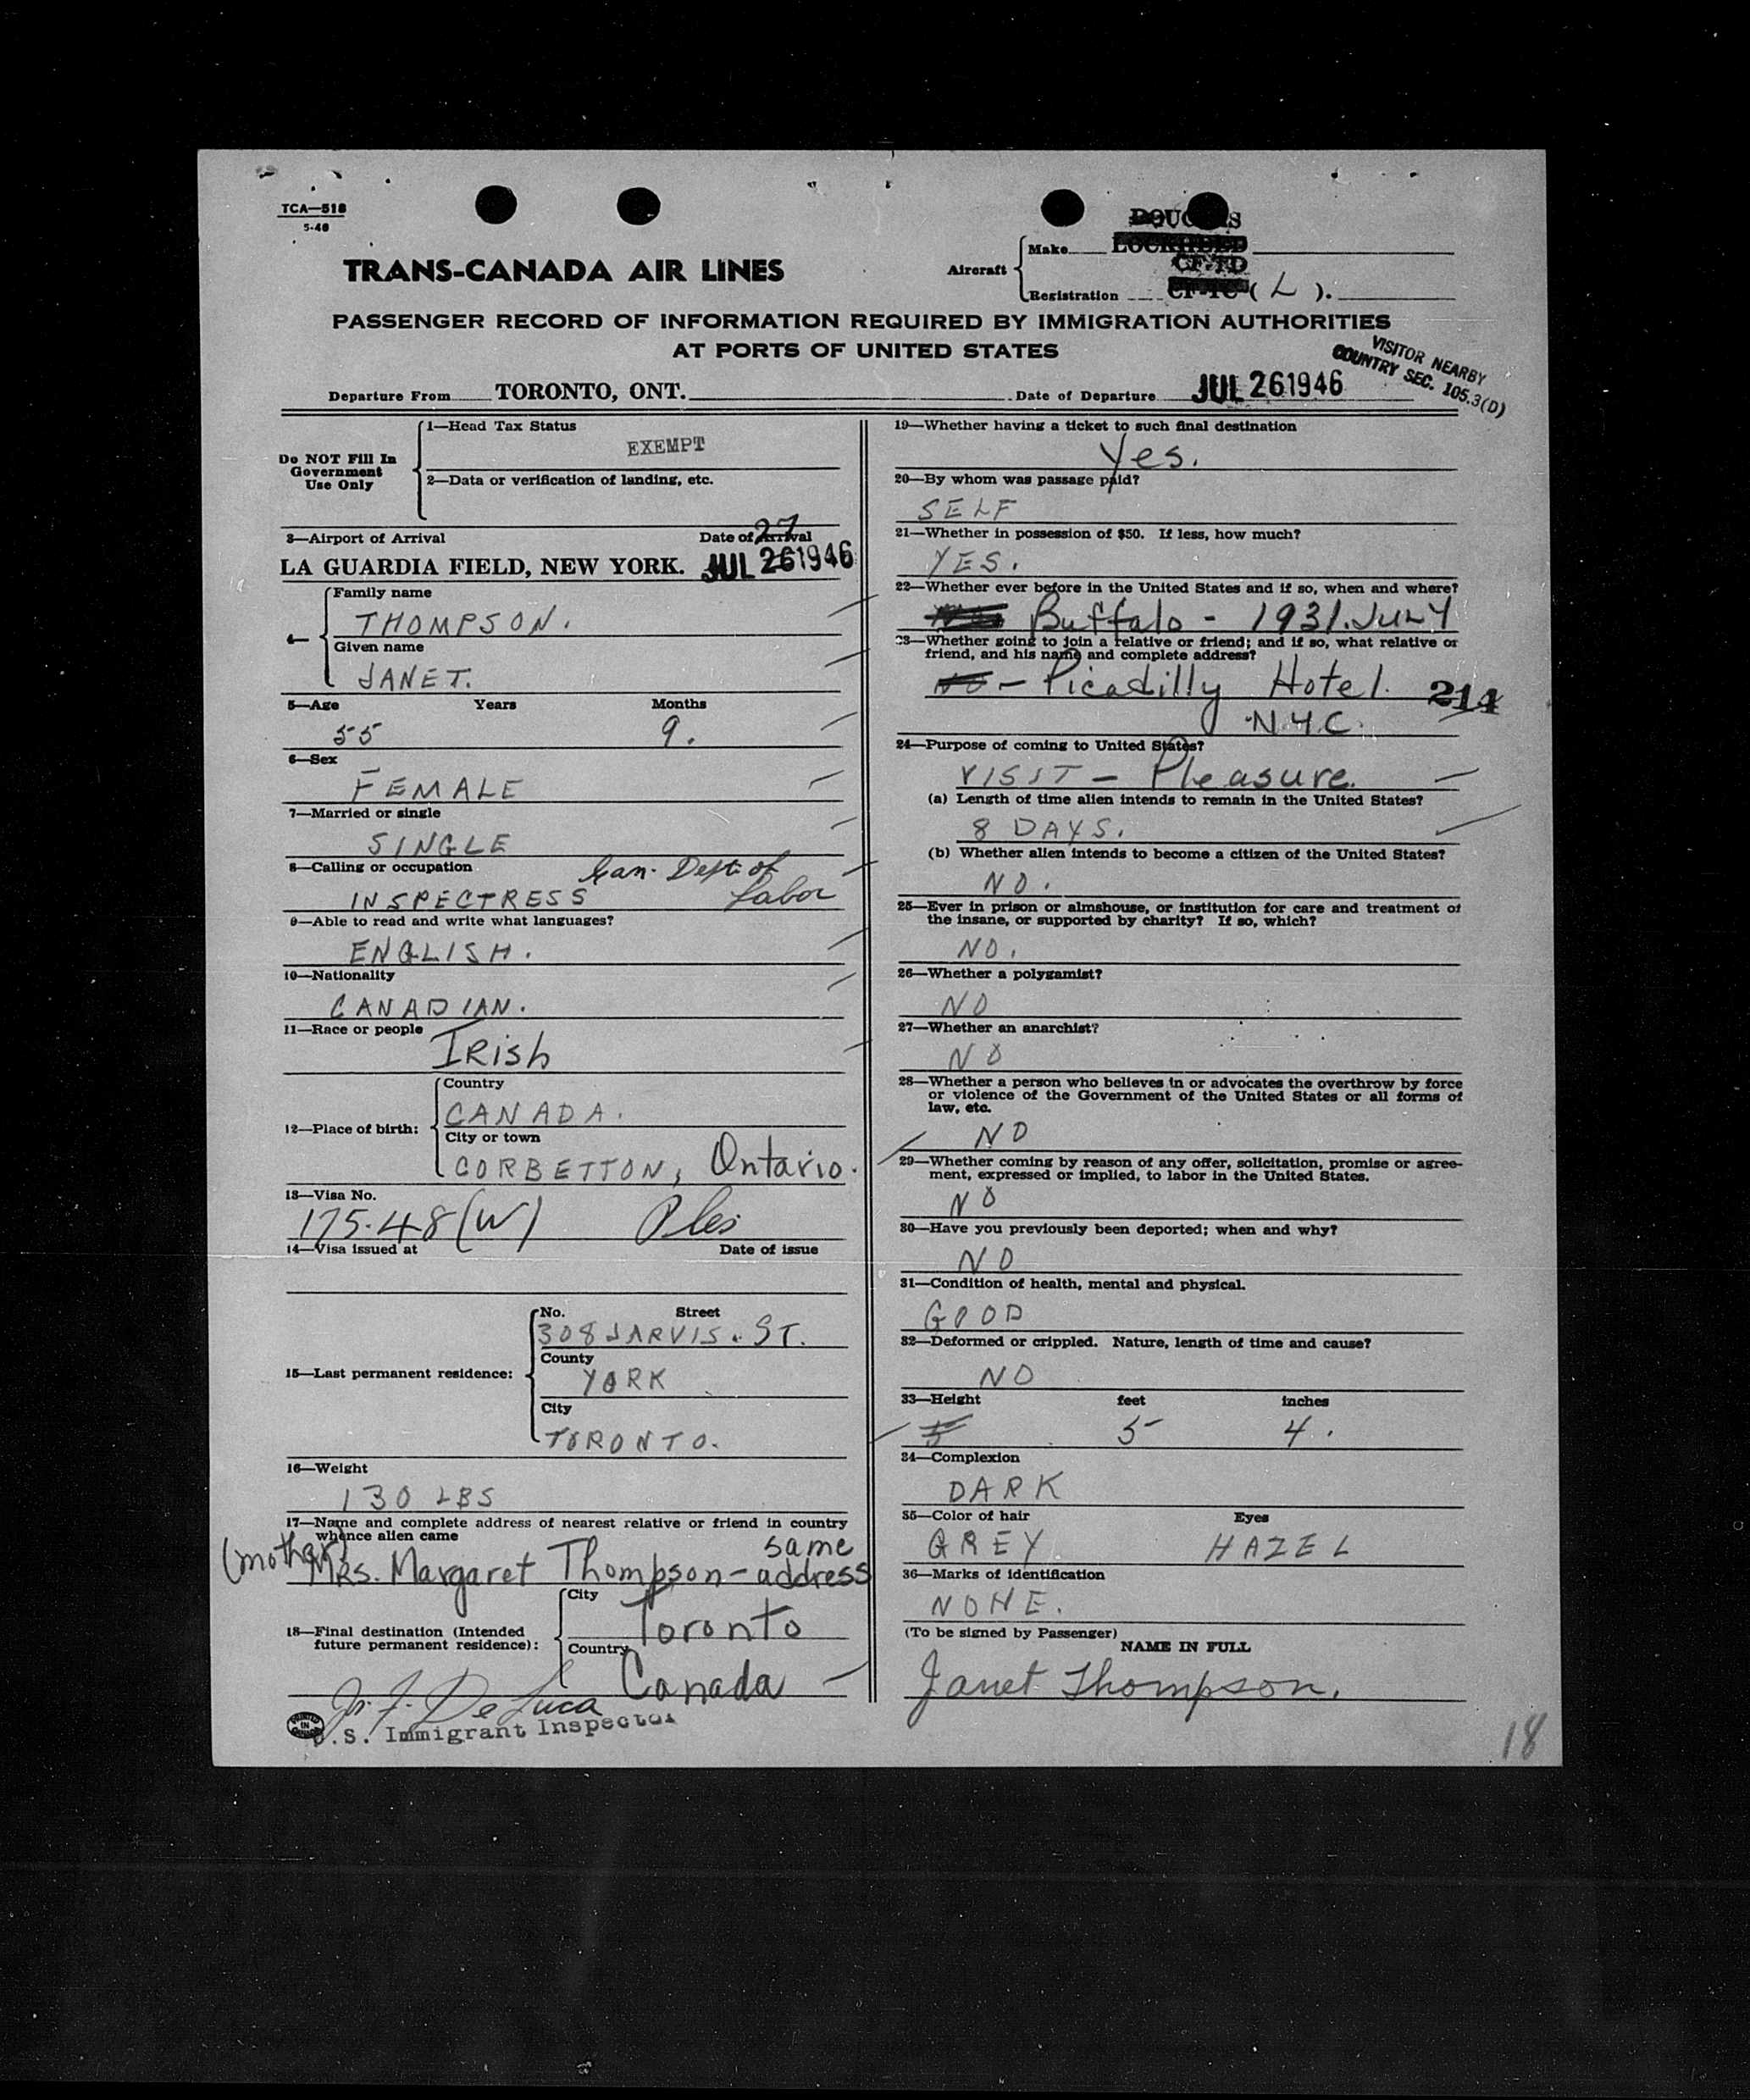 TCA—518
5-46
DOUGLAS
Make LOCKHEED
TRANS-CANADA AIR LINES
Aircraft
CF-TD
Registration CF-TC ( L ).
PASSENGER RECORD OF INFORMATION REQUIRED BY IMMIGRATION AUTHORITIES
AT PORTS OF UNITED STATES
VISITOR NEARBY
COUNTRY SEC. 105.3(D)
Departure From TORONTO, ONT. Date of Departure JUL 26 1946
Do NOT Fill In
Government
Use Only
1—Head Tax Status
EXEMPT
2—Data or verification of landing, etc.
3—Airport of Arrival Date of Arrival
27
LA GUARDIA FIELD, NEW YORK. JUL 26 1946
4—
Family name
THOMPSON.
Given name
JANET.
5—Age Years Months
55 9.
6—Sex
FEMALE
7—Married or single
SINGLE
8—Calling or occupation
Can. Dept. of
INSPECTRESS Labor
9—Able to read and write what languages?
ENGLISH.
10—Nationality
CANADIAN.
11—Race or people
IRish
12—Place of birth:
Country
CANADA.
City or town
CORBETTON, Ontario.
13—Visa No.
175.48(W)
14—Visa issued at Date of issue
15—Last permanent residence:
No. Street
308 JARVIS. ST.
County
YORK
City
TORONTO.
16—Weight
130 LBS
17—Name and complete address of nearest relative or friend in country
whence alien came
(mother) same
MRS. Margaret Thompson - address
18—Final destination (Intended
future permanent residence):
City
Toronto
Country
Canada
De Luca
U.S. Immigrant Inspector
PRINTED
IN
CANADA
19—Whether having a ticket to such final destination
Yes.
20—By whom was passage paid?
SELF
21—Whether in possession of $50. If less, how much?
YES.
22—Whether ever before in the United States and if so, when and where?
Buffalo - 1931. JULY
23—Whether going to join a relative or friend; and if so, what relative or
friend, and his name and complete address?
NO - Picadilly Hotel. 214
N.Y.C.
24—Purpose of coming to United States?
VISIT - Pleasure.
(a) Length of time alien intends to remain in the United States?
8 DAYS.
(b) Whether alien intends to become a citizen of the United States?
NO.
25—Ever in prison or almshouse, or institution for care and treatment of
the insane, or supported by charity? If so, which?
NO.
26—Whether a polygamist?
NO
27—Whether an anarchist?
NO
28—Whether a person who believes in or advocates the overthrow by force
or violence of the Government of the United States or all forms of
law, etc.
NO
29—Whether coming by reason of any offer, solicitation, promise or agree-
ment, expressed or implied, to labor in the United States.
NO
30—Have you previously been deported; when and why?
NO
31—Condition of health, mental and physical.
GOOD
32—Deformed or crippled. Nature, length of time and cause?
NO
33—Height feet inches
5 5 4.
34—Complexion
DARK
35—Color of hair Eyes
GREY HAZEL
36—Marks of identification
NONE.
(To be signed by Passenger)
NAME IN FULL
Janet Thompson.
18